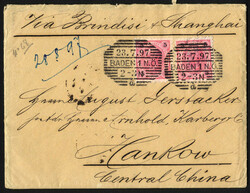 Via Brindisi & Shanghai
20 8 97
23.7.97
BADEN 1 N.Ö.
2-3N
23.7.97
BADEN 1 N.Ö.
2-3N
Herrn August Gerstacker
Arnhold, Karberg &
Hankow
Central China